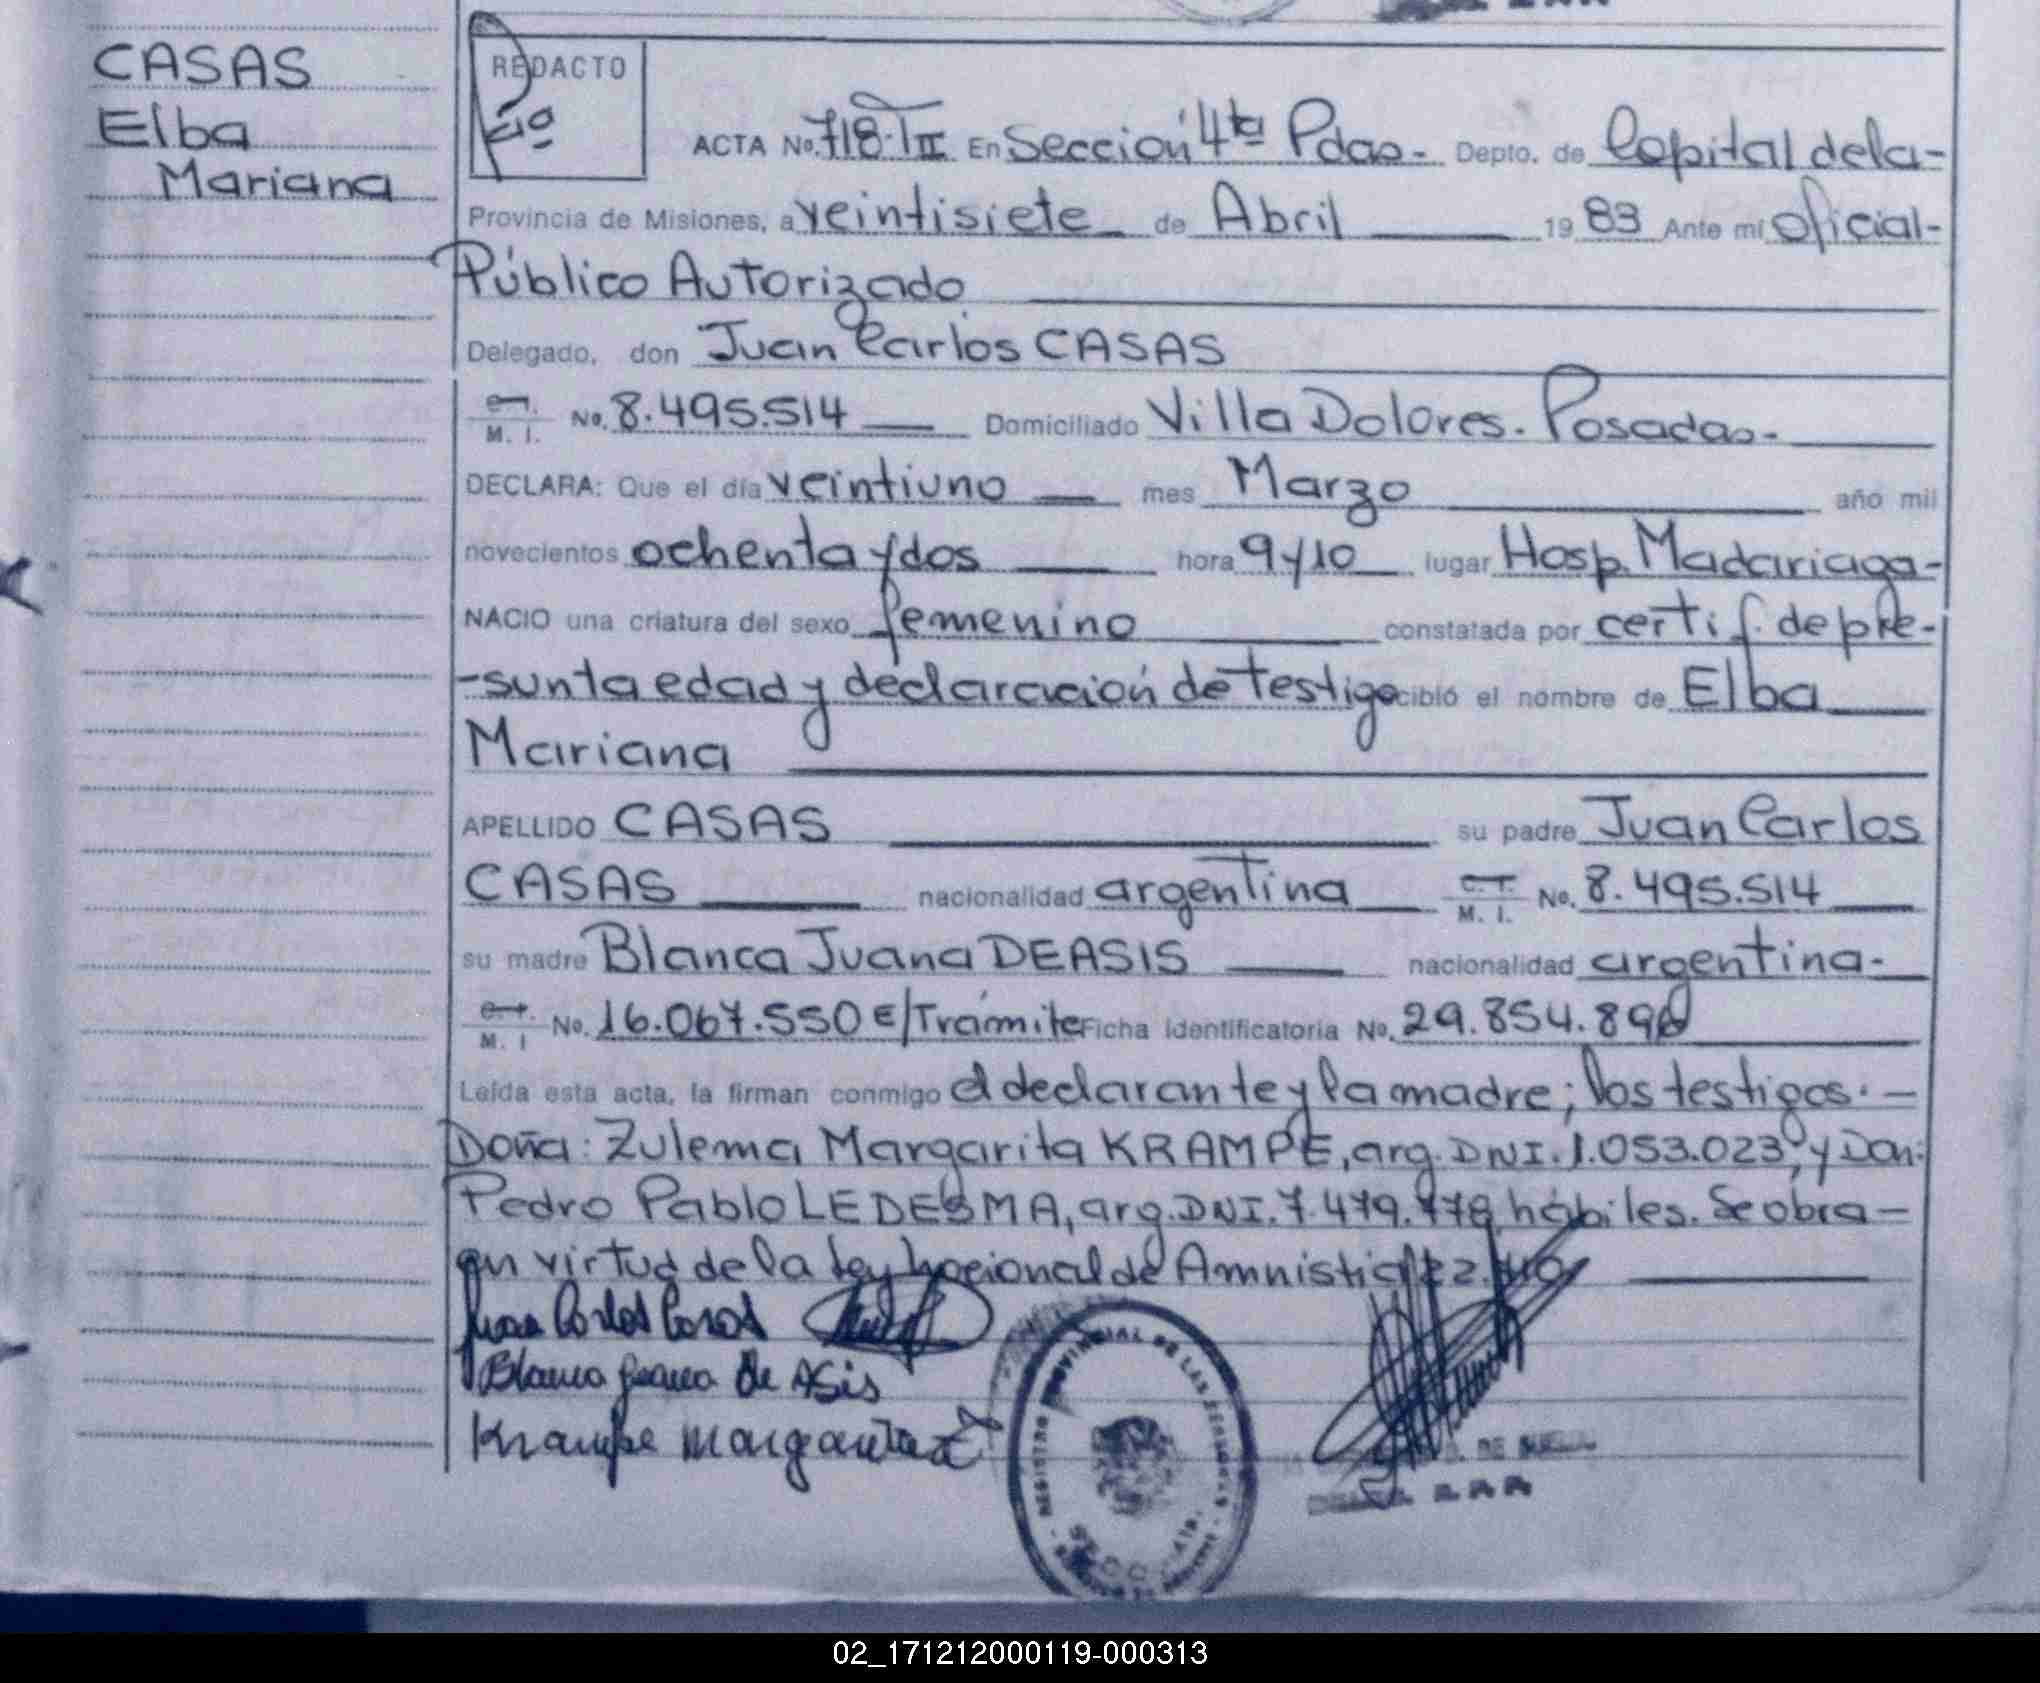 CASAS
Elba
Mariana
REDACTO
ACTA No. 718.TII En Sección 4ta Pdas.- Depto. de Capital de la-
Provincia de Misiones, a veintisiete de Abril 1983 Ante mí Oficial-
Público Autorizado
Delegado, don Juan Carlos CASAS
M. I. No. 8.495.514 Domiciliado Villa Dolores. Posadas.-
DECLARA: Que el día veintiuno mes Marzo año mil
novecientos ochenta y dos hora 9 y 10 lugar Hosp. Madariaga-
NACIO una criatura del sexo femenino constatada por certif. de pre-
-sunta edad y declaración de testigo cibió el nombre de Elba
Mariana
APELLIDO CASAS su padre Juan Carlos
CASAS nacionalidad argentina C.I. M. I. No. 8.495.514
su madre Blanca Juana DEASIS nacionalidad argentina.-
M. I No. 16.067.550 E/Trámite Ficha Identificatoria No. 29.854.896
Leída esta acta, la firman conmigo el declarante y la madre; los testigos.-
Doña: Zulema Margarita KRAMPE, arg. DNI. 1.053.023, y Don:
Pedro Pablo LEDESMA, arg. DNI. 7.479.778, hábiles. Se obra-
en virtud de la Ley Nacional de Amnistia
Juan Carlos Casas
Blanca Juana de ASis
Krampe Margarita
PROVINCIAL DE LAS PERSONAS
02_171212000119-000313